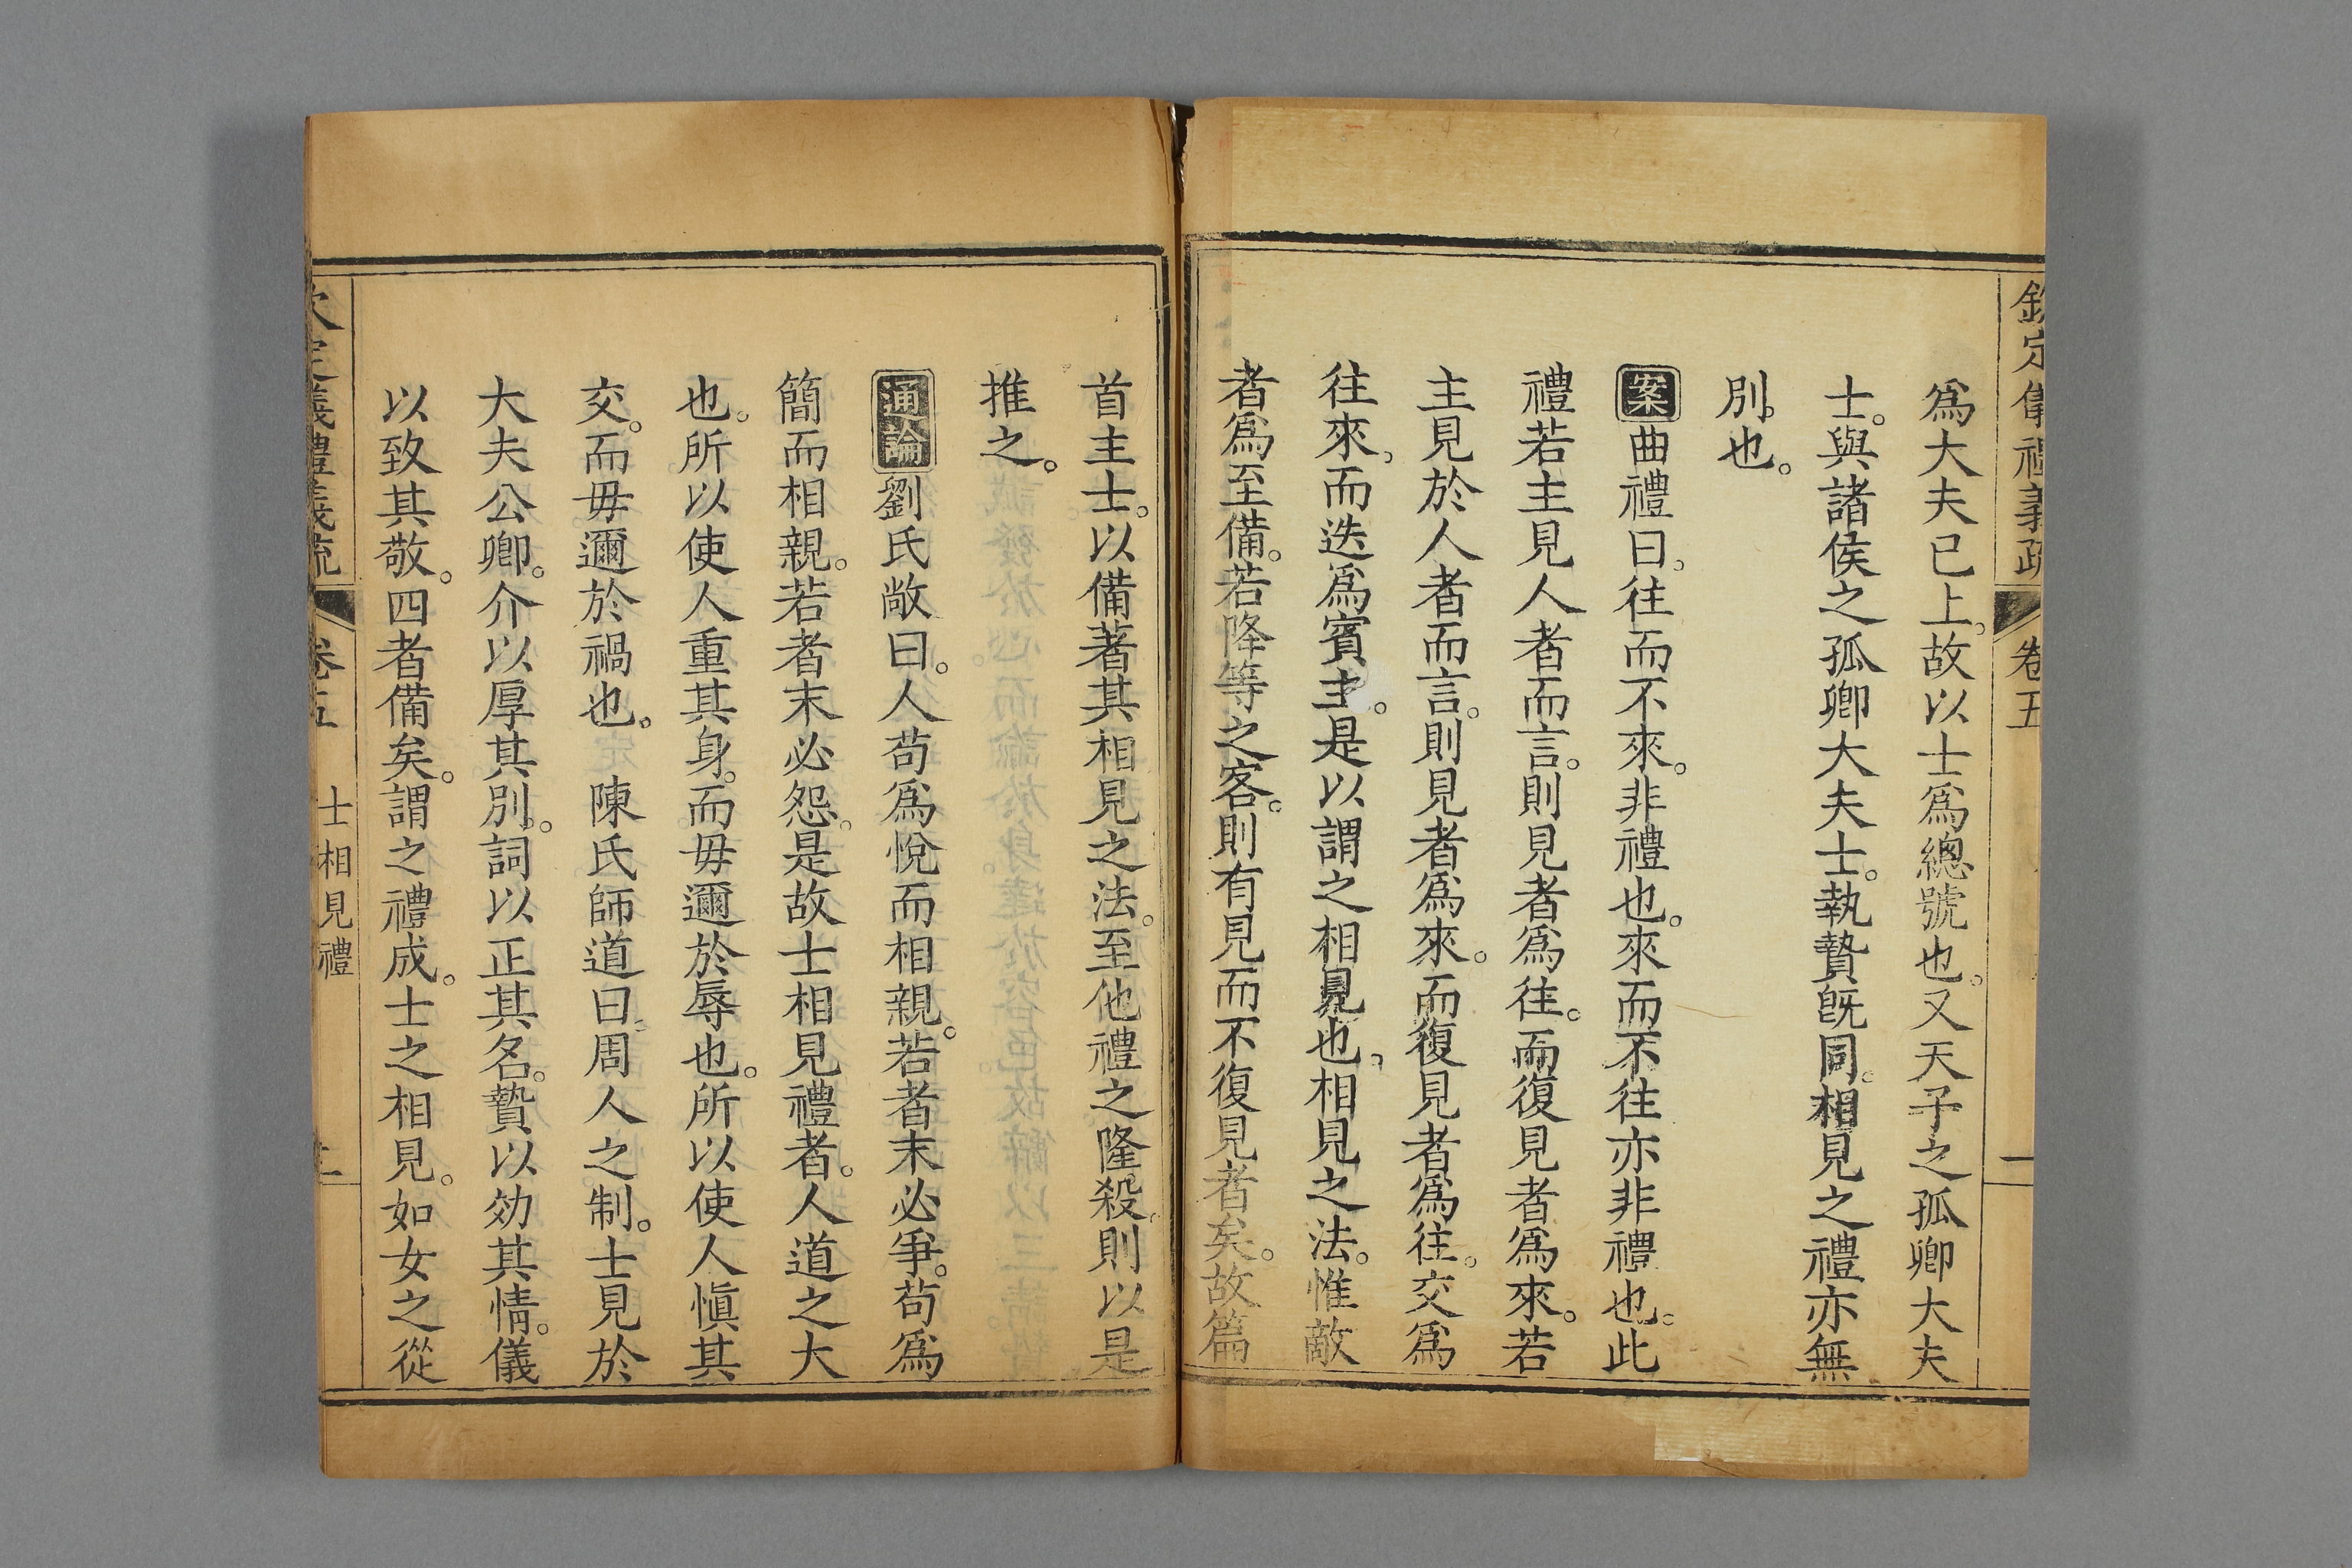 欽定儀禮義疏 卷五 一
爲大夫已上。故以士爲總號也。又天子之孤卿大夫
士。與諸侯之孤卿大夫士。執贄旣同。相見之禮亦無
別也。
案曲禮曰、往而不來。非禮也。來而不往亦非禮也。此
禮若主見人者而言。則見者爲往。而復見者爲來。若
主見於人者而言。則見者爲來。而復見者爲往。交爲
往來、而迭爲賓主。是以謂之相見也、相見之法。惟敵
者爲至備。若降等之客。則有見而不復見者矣。故篇
首主士。以備著其相見之法。至他禮之隆殺。則以是
推之。
通論劉氏敞曰。人苟爲悅而相親。若者末必爭。苟爲
簡而相親。若者末必怨。是故士相見禮者。人道之大
也。所以使人重其身。而毋邇於辱也。所以使人愼其
交。而毋邇於禍也。 陳氏師道曰周人之制。士見於
大夫公卿。介以厚其別。詞以正其名。贄以効其情。儀
以致其敬。四者備矣。謂之禮成。士之相見。如女之從
欽定儀禮義疏 卷五 士相見禮